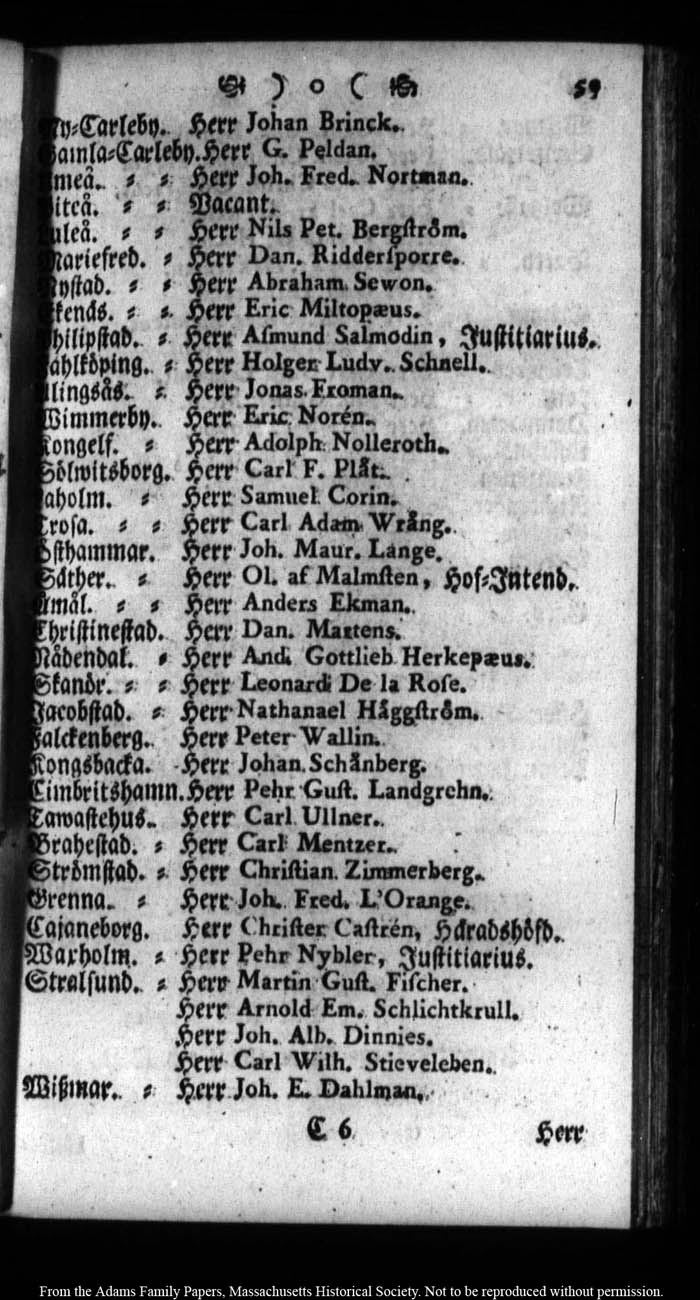 ) o ( 59
Ny-Carleby. Herr Johan Brinck.
Gamla-Carleby. Herr G. Peldan.
Umeå. Herr Joh. Fred. Nortman.
Piteå. Vacant.
Luleå. Herr Nils Pet. Bergſtrőm.
Mariefred. Herr Dan. Ridderſporre.
Nyſtad. Herr Abraham Sewon.
Ekenås. Herr Eric Miltopæus.
Philipſtad. Herr Aſmund Salmodin, Juſtitiarius.
Fahlköping. Herr Holger Ludv. Schnell.
Alingsås. Herr Jonas Froman.
Wimmerby. Herr Eric Norén.
Kongelf. Herr Adolph Nolleroth.
Sölwitsborg. Herr Carl F. Plåt.
Laholm. Herr Samuel Corin.
Troſa. Herr Carl Adam Wrång.
Öſthammar. Herr Joh. Maur. Lange.
Säther. Herr Ol. af Malmſten, Hof-Intend.
Åmål. Herr Anders Ekman.
Chriſtineſtad. Herr Dan. Martens.
Nådendal. Herr And. Gottlieb Herkepæus.
Skanör. Herr Leonard De la Roſe.
Jacobſtad. Herr Nathanael Häggſtröm.
Falckenberg. Herr Peter Wallin.
Kongsbacka. Herr Johan Schånberg.
Cimbritshamn. Herr Pehr Guſt. Landgrehn.
Tawaſtehus. Herr Carl Ullner.
Braheſtad. Herr Carl Mentzer.
Strömſtad. Herr Chriſtian Zimmerberg.
Grenna. Herr Joh. Fred. L'Orange.
Cajaneborg. Herr Chriſter Caſtrén, Häradshöfd.
Waxholm. Herr Pehr Nybler, Juſtitiarius.
Stralſund. Herr Martin Guſt. Fiſcher.
Herr Arnold Em. Schlichtkrull.
Herr Joh. Alb. Dinnies.
Herr Carl Wilh. Stieveleben.
Wißmar. Herr Joh. E. Dahlman.
C 6 Herr
From the Adams Family Papers, Massachusetts Historical Society. Not to be reproduced without permission.